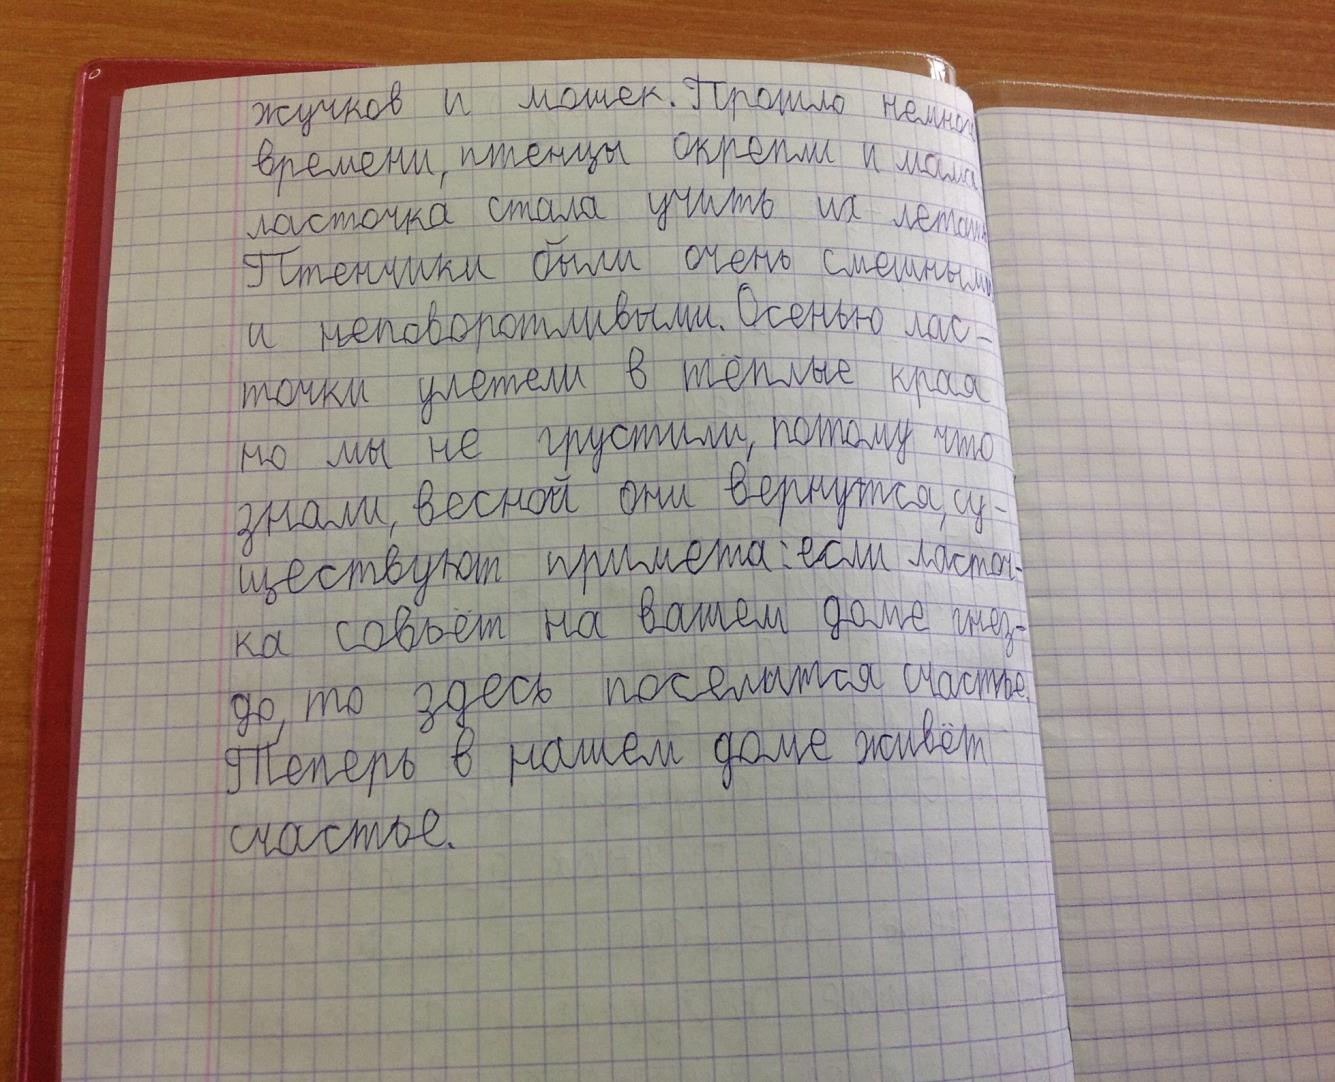 жучков и мошек. Прошло немного
времени, птенцы окрепли и мама
ласточка стала учить их летать
Птенчики были очень смешными
и неповоротливыми. Осенью лас-
точки улетели в тёплые края
но мы не грустили, потому что
знали, весной они вернутся, су-
ществуют примета: если ласточ-
ка совьёт на вашем доме гнез-
до, то здесь поселится счастье.
Теперь в нашем доме живёт
счастье.